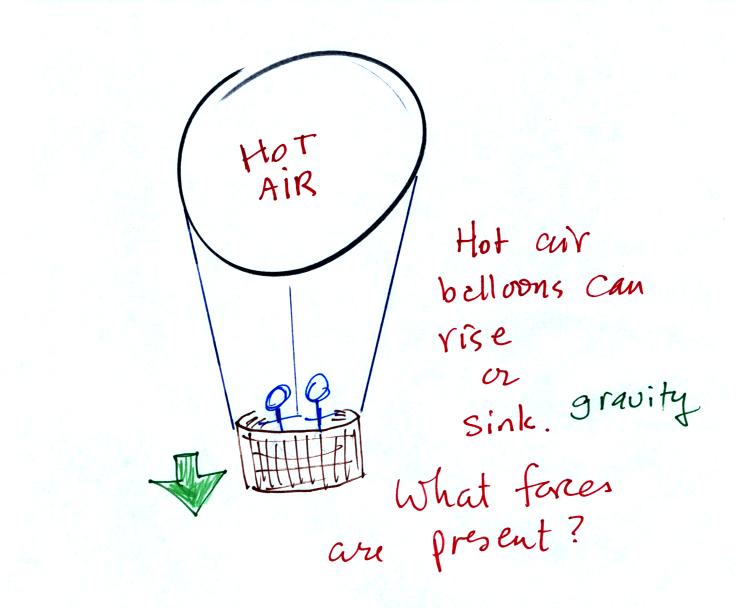 HOT
AIR
Hot air
balloons can
rise
or
sink.
gravity
What forces
are present?